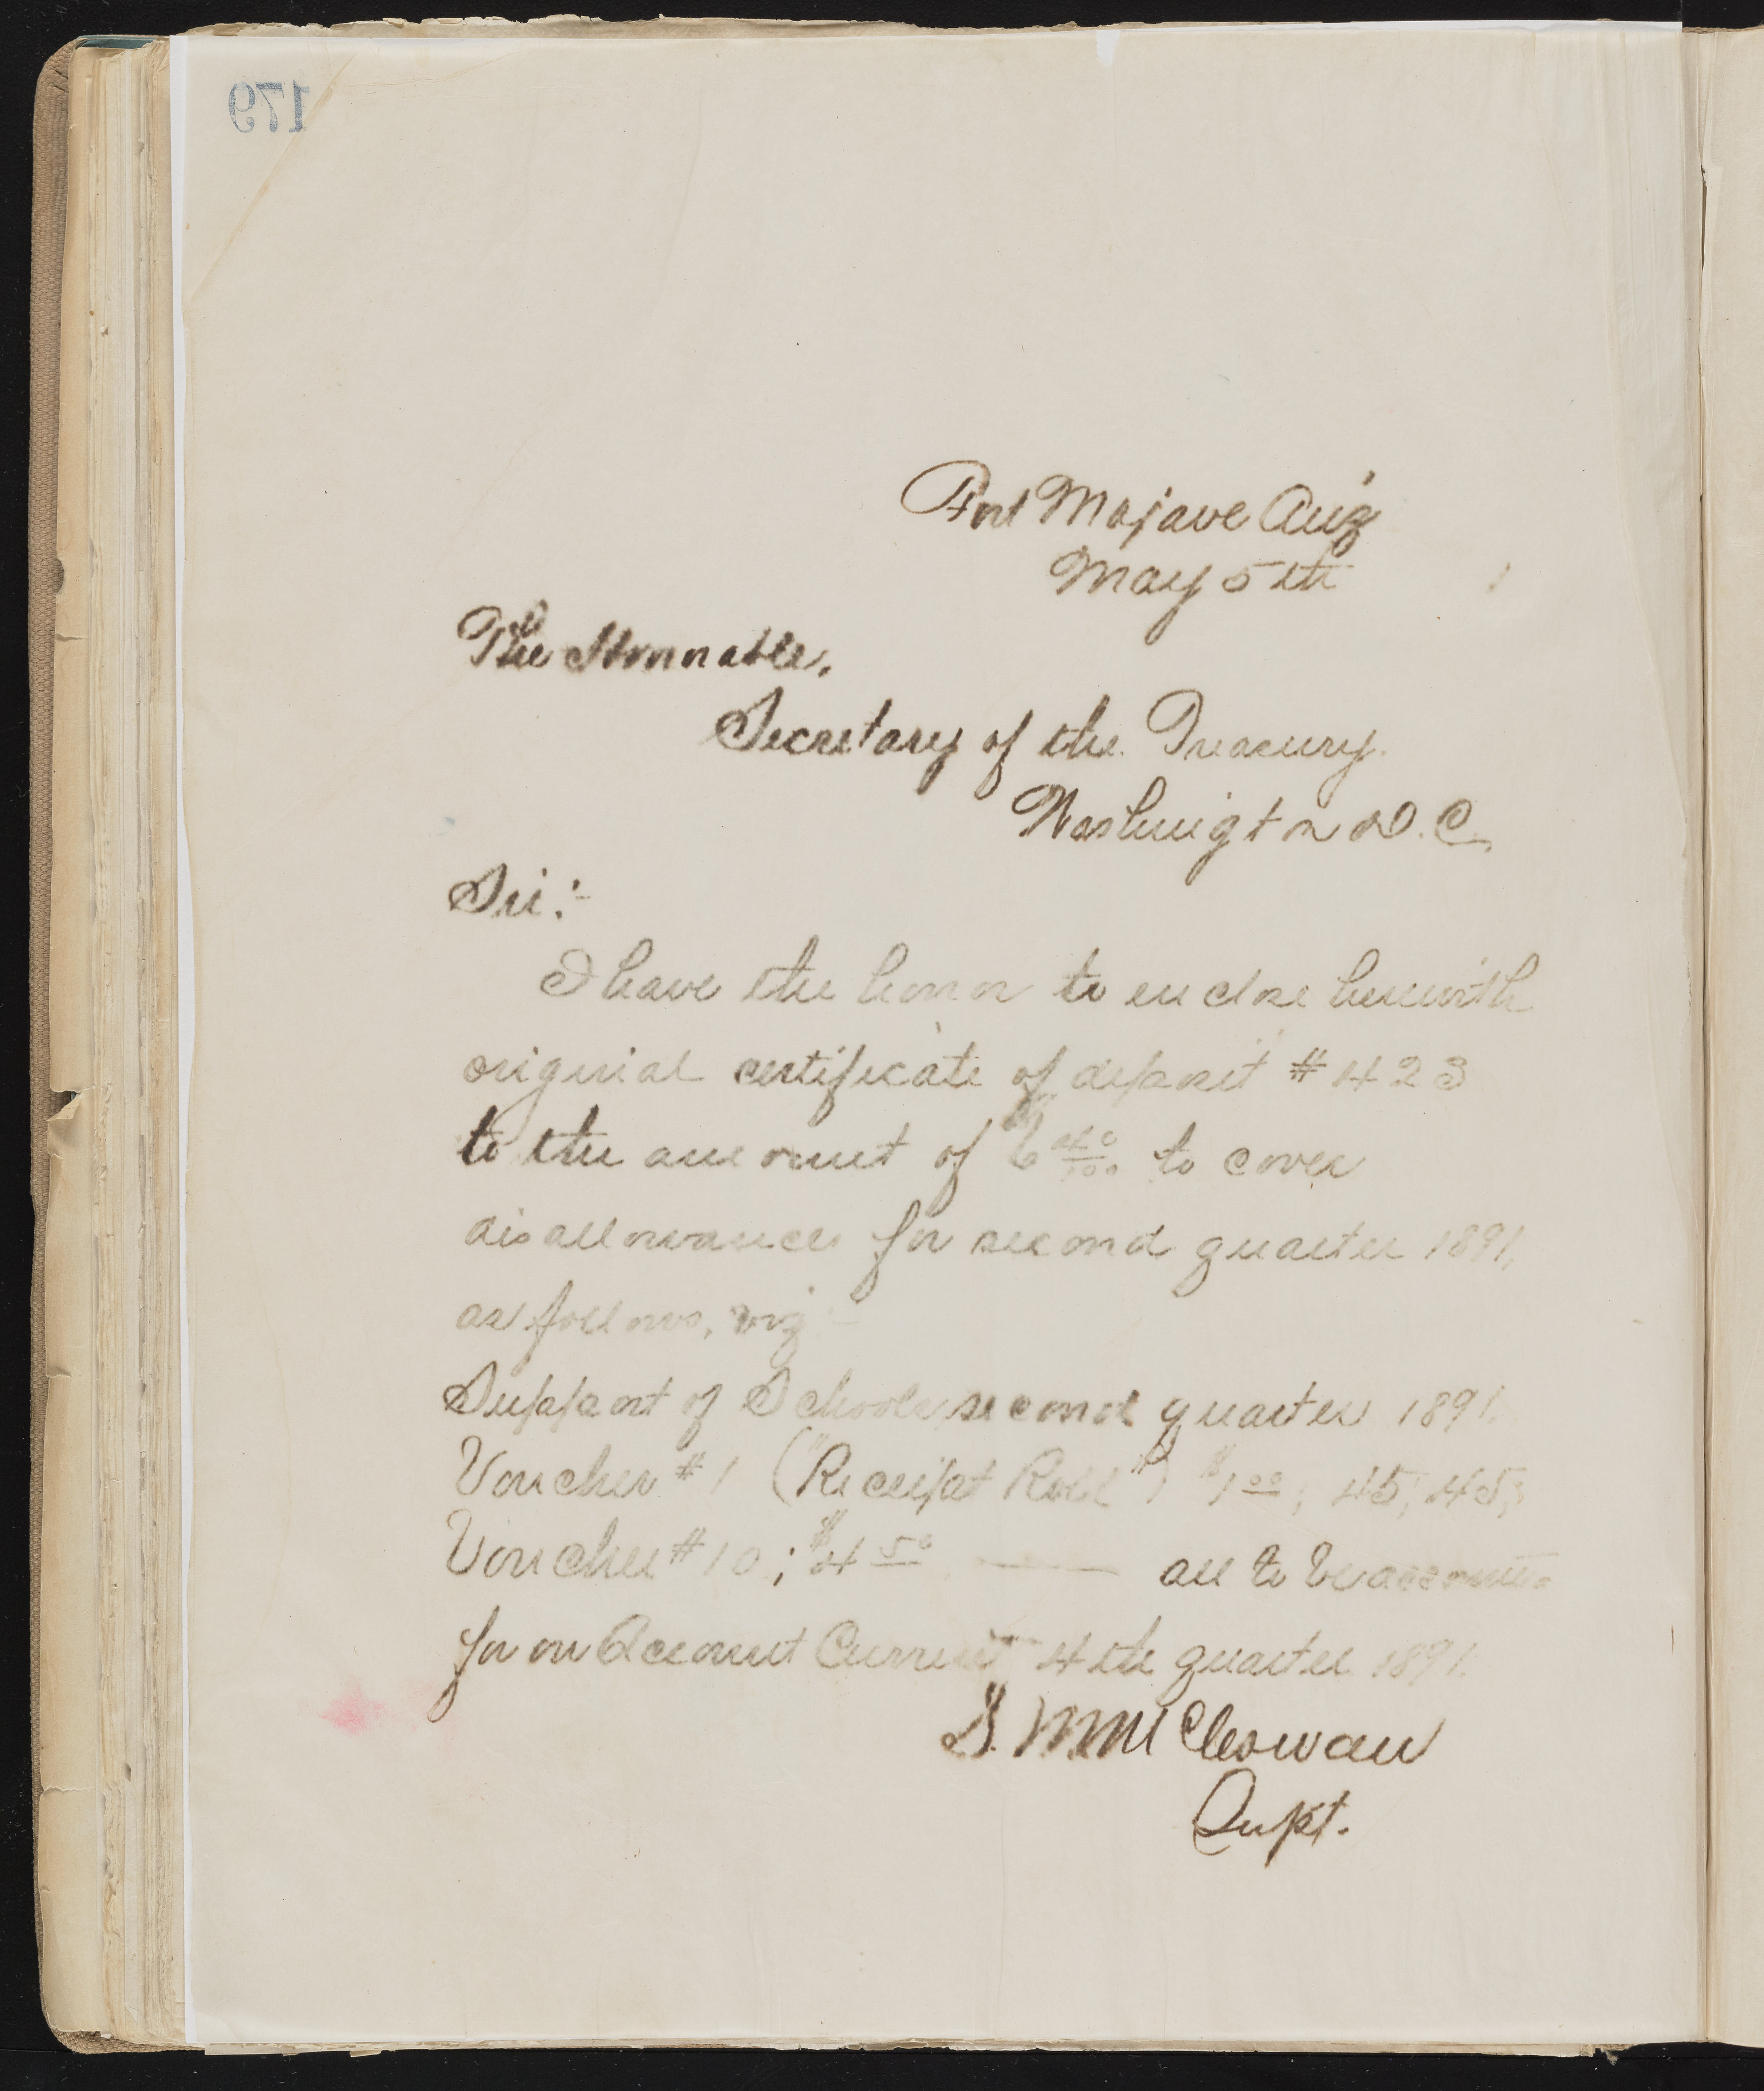 179
Fort Mojave Ariz
May 5th
The Honorable,
Secretary of the Treasury.
Washington D.C.
Sir:-
I have the honor to enclose herewith
original certificate of deposit # 423
to the amount of 6 40/100 to cover
disallowances for second quarter 1891,
as follows, viz
Support of Schools second quarter 1891.
Voucher # 1 ("Receipt Roll") $1 00; 45; 45;
Voucher # 10; $4 50 — all to be accounted
for on Account Current 4th quarter 1891.
S. M. McCowan
Supt.